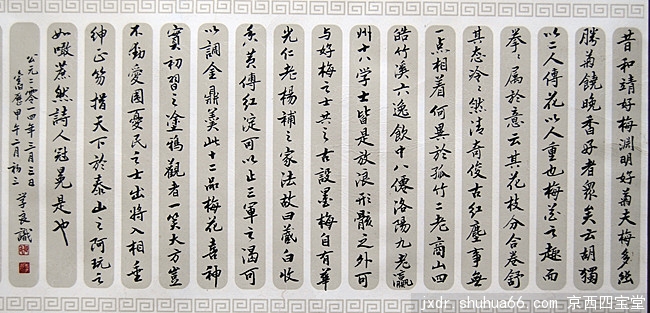 昔和靖好梅淵明好菊夫梅多
勝菊饒晚香好者眾矣云胡獨
以二人傳花以人重也梅花之趣而
拳拳屬於意云其花枝分合卷舒
其态泠泠然清奇俊古紅塵事無
一点相着何異於孤竹二老商山四
皓竹溪六逸飲中八僊洛陽九老瀛
州十八学士皆是放浪形骸之外可
与好梅之士共之古設墨梅自有華
光仁老楊補之家法故曰藏白收
香黄傅紅淀可以止三軍之渴可
以調金鼎羹此十二品梅花喜神
實初習之塗鴉觀者一笑大方豈
不動愛國憂民之士出將入相垂
紳正笏措天下於泰山之阿玩之
如噉蔗然詩人冠冕是也
公元二零一四年三月三日
舊曆甲午二月初三
學良識
jxdr.shuhua66.com 京西四宝堂